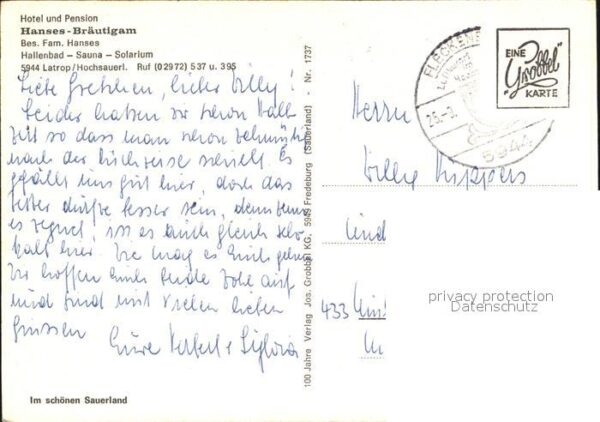 Hotel und Pension
Hanses-Bräutigam
Bes. Fam. Hanses
Hallenbad – Sauna – Solarium
5944 Latrop/Hochsauerl. Ruf (0 29 72) 5 37 u. 3 95
Liebe Gretchen, lieber Willy!
Leider haben wir schon Halb-
zeit so dass man schon
nach der schielt. Es
gefällt uns gut hier, doch das
Wetter dürfte besser sein, denn wenn
es regnet, ist es auch gleich sehr
kalt hier. Wie mag es Euch gehen
Wir hoffen Euch beide wohl auf
und sind mit vielen lieben
Grüssen
Eure
Im schönen Sauerland
100 Jahre Verlag Jos. Grobbel KG, 5948 Fredeburg (Sauerland) - Nr. 1737
5944
EINE
Grobbel
KARTE
Herrn
Willy
433
privacy protection
Datenschutz